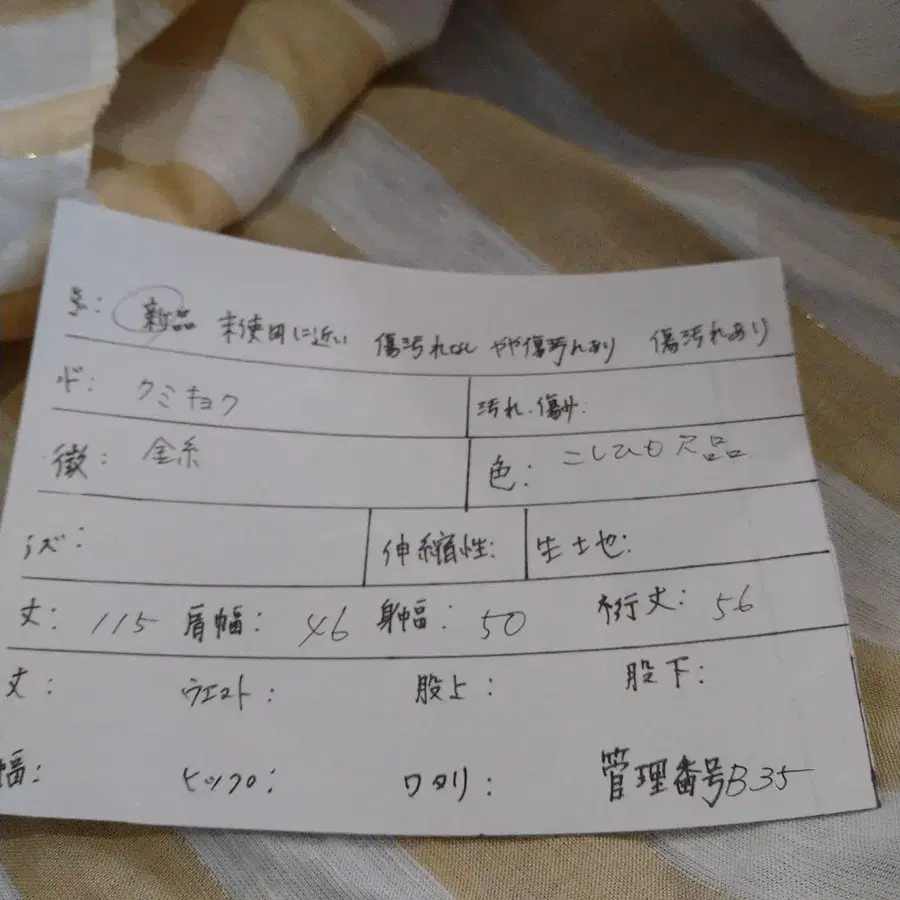 新品 未使用に近い 傷汚れなし やや傷汚れあり 傷汚れあり
ド: クミキョク 汚れ、傷み:
徴: 金糸 色: こしひも欠品
イズ: 伸縮性: 生地:
丈: 115 肩幅: 46 身幅: 50 裄丈: 56
丈: ウエスト: 股上: 股下:
幅: ヒップ: ワタリ: 管理番号B35